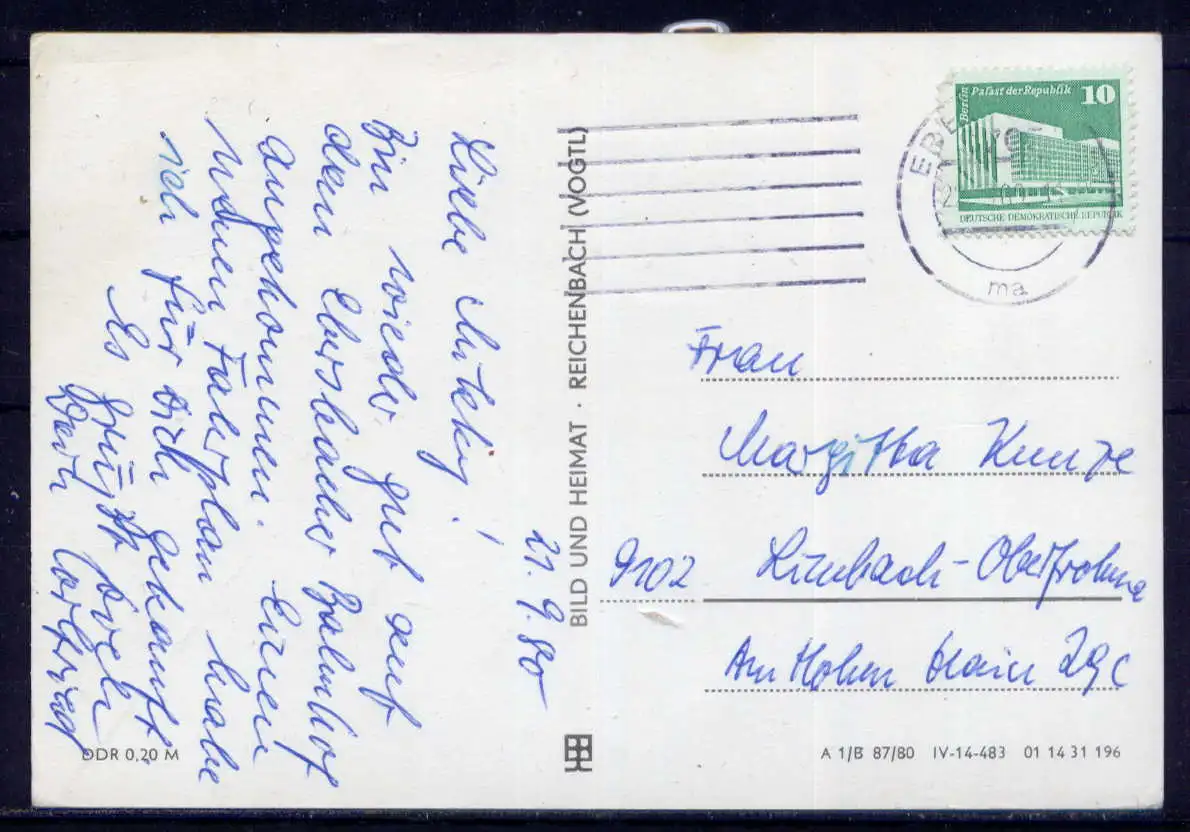 21. 9. 80
Liebe Muteky!
Bin wieder gut auf
dem Ebersbacher Bahnhof
angekommen. Einen
neuen Fahrplan habe
ich für Dich gekauft.
Es grüßt Dich
Dein
BILD UND HEIMAT · REICHENBACH (VOGTL)
DDR 0,20 M
Berlin
Palast der Republik 10
DEUTSCHE DEMOKRATISCHE REPUBLIK
EBE
ma
Frau
Margitta Kunze
9102 Limbach-Oberfrohna
Am Hohen Hain 29c
A 1/B 87/80 IV-14-483 01 14 31 196